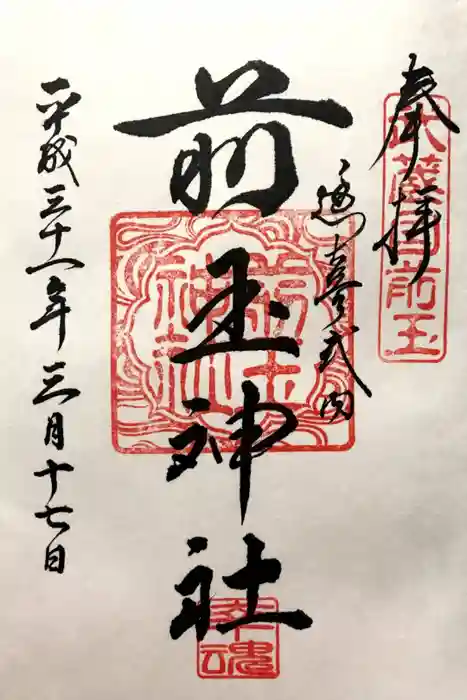 奉拝
延喜式内
前玉神社
平成三十一年三月十七日
武蔵国前玉
前玉神社
幸魂